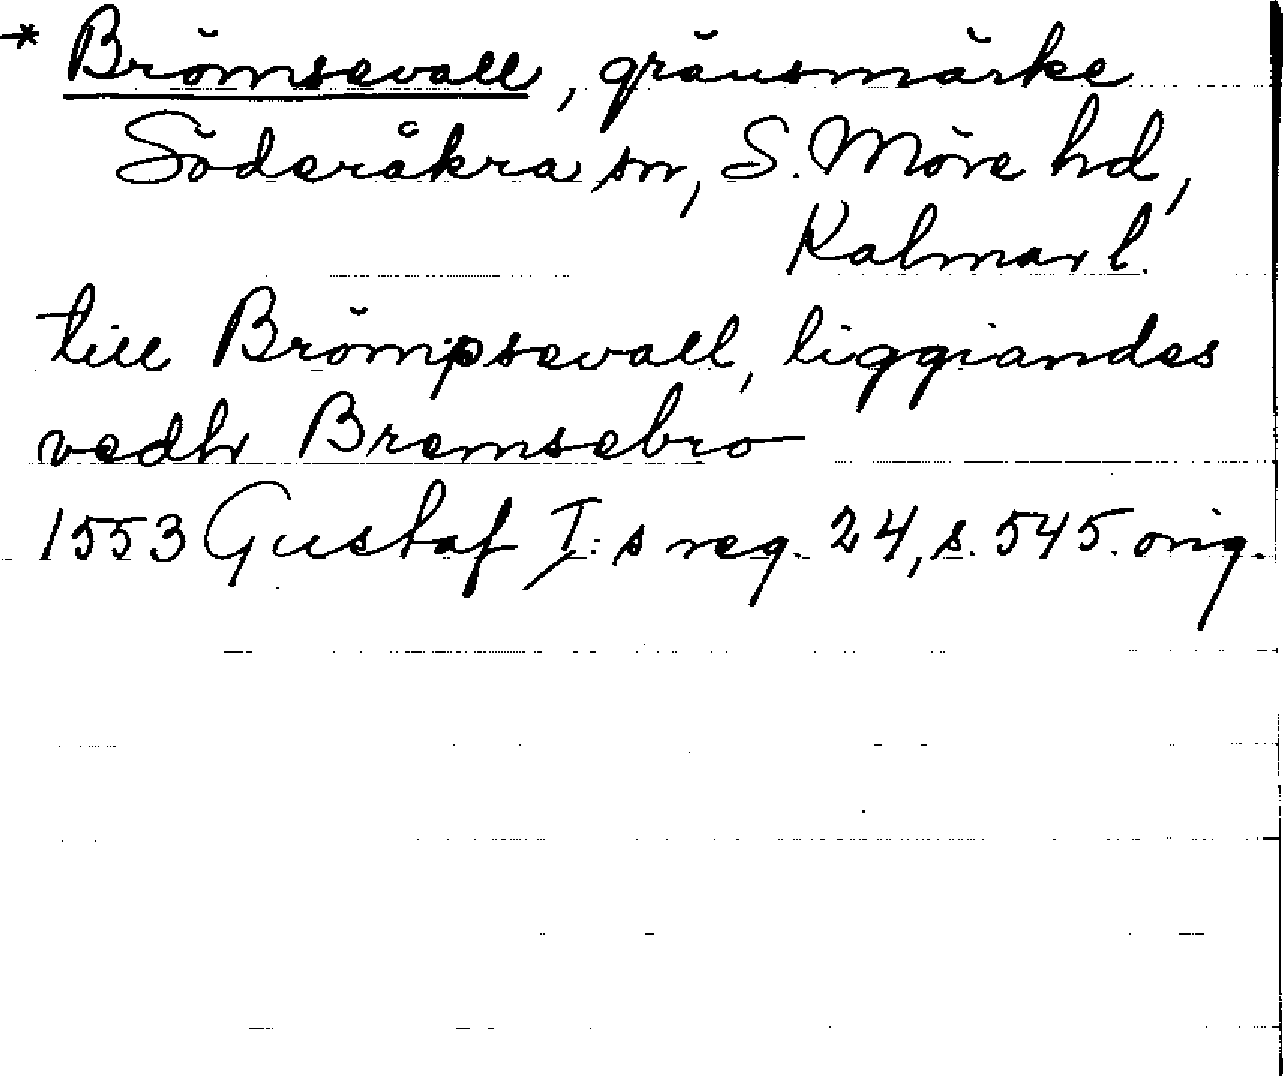 * Brömsevall, gränsmärke
Söderåkra sn, S. Möre hd,
Kalmar l.
till Brömpsevall, liggiandes
vedhr Bremsebro
1553 Gustaf I:s reg. 24, s. 545. orig.